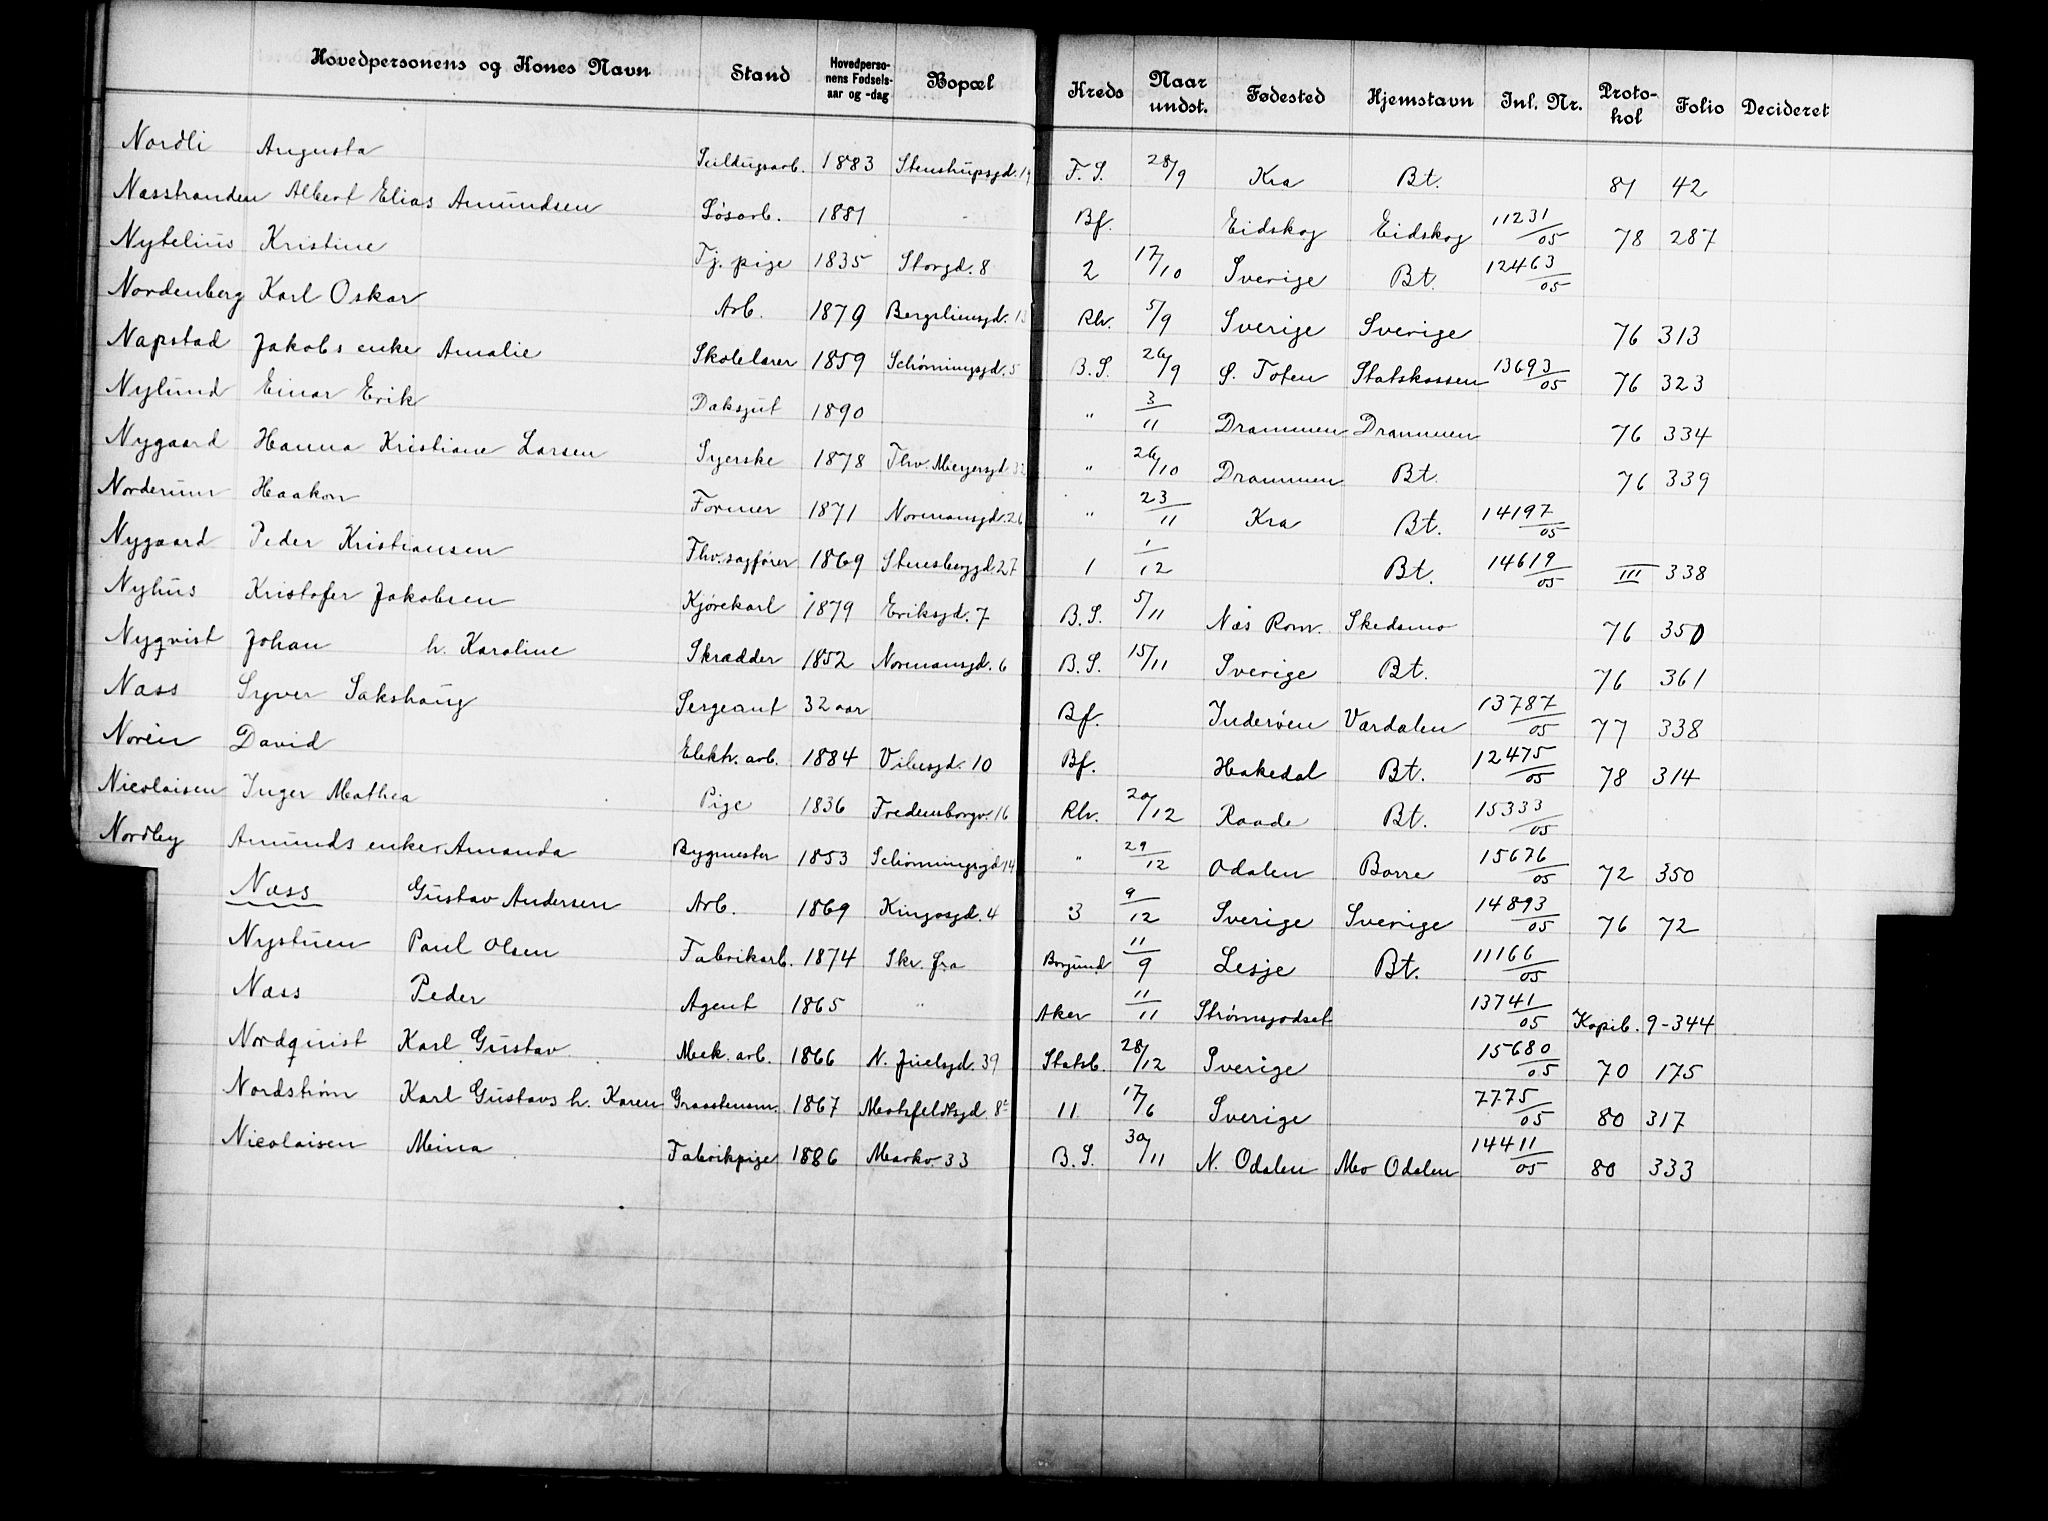 Hovedpersonens og Kones Navn Stand Hovedpersonens Fødselsaar og -dag Bopæl Kreds Naar undst. Fødested Hjemstavn Inl. Nr. Protokol Folio Decideret
Nordli Augusta 1883 Stenstrupsgd. 19 F. S. 28/9 Kra Bt. 81 42
Næsstranden Albert Elias Amundsen Løsarb. 1881 Bf. Eidskog Eidskog 11231/05 78 287
Nytelius Kristine Tj. pige 1835 Storgd. 8 2 17/10 Sverige Bt. 12463/05
Nordenberg Karl Oskar Arb. 1879 Bergsliensgd. 13 Rh. 5/9 Sverige Sverige 76 313
Napstad Jakobs enke Amalie Skolelærer 1859 Schønningsgd. 5 B. S. 26/9 S. Toten Statskassen 13693/05 76 323
Nylund Einar Erik Daksgut 1890 " 3/11 Drammen Drammen 76 334
Nygaard Hanna Kristiane Larsen Syerske 1878 Thv. Meyersgd. 32 " 26/10 Drammen Bt. 76 339
Norderum Haakon Former 1871 Normansgd. 26 " 23/11 Kra Bt. 14197/05
Nygaard Peder Kristiansen Thv. sagfører 1869 Stensberggd. 27 1 1/12 Bt. 14619/05 III 338
Nyhus Kristofer Jakobsen Kjørekarl 1879 Eriksgd. 7 B. S. 5/11 Næs Rom. Skedsmo 76 350
Nyqvist Johan h. Karoline Skrædder 1852 Normansgd. 6 B. S. 15/11 Sverige Bt. 76 361
Næss Syver Sakshaug Sergeant 32 aar Bf. Inderøen Værdalen 13787/05 77 338
Norén David Elektr. arb. 1884 Vibesgd. 10 Bf. Hakedal Bt. 12475/05 78 314
Nicolaisen Inger Mathea Pige 1836 Fredensborgv. 16 Rh. 20/12 Raade Bt. 15333/05
Nordby Amunds enke Amanda Bygmester 1853 Schønningsgd. 14 " 29/12 Odalen Borre 15676/05 72 350
Næss Gustav Andersen Arb. 1869 Kingosgd. 4 3 9/12 Sverige Sverige 14893/05 76 72
Nystuen Paul Olsen Fabrikarb. 1874 Skr. fra Borgund 11/9 Lesje Bt. 11166/05
Næss Peder Agent 1865 " Aker 11/11 Strømsgodset 13741/05 Kopib. 9-344
Nordquist Karl Gustav Mek. arb. 1866 N. Juelsgd. 39 Statsb. 28/12 Sverige 15680/05 70 175
Nordstrøm Karl Gustavs h. Karen Graastensm. 1867 Motzfeldtsgd. 8 11 17/6 Sverige 7775/05 80 317
Nicolaisen Mina Fabrikpige 1886 Markv. 33 B. S. 30/11 N. Odalen Mo Odalen 14411/05 80 333